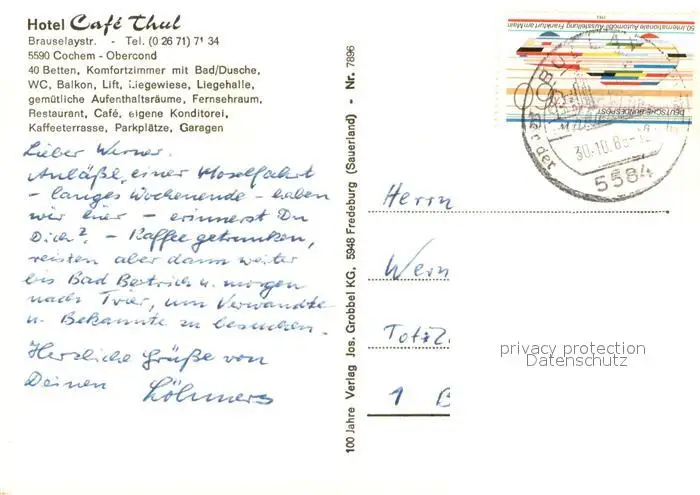 Hotel Café Thul
Brauselaystr. - Tel. (0 26 71) 71 34
5590 Cochem - Obercond
40 Betten, Komfortzimmer mit Bad/Dusche,
WC, Balkon, Lift, Liegewiese, Liegehalle,
gemütliche Aufenthaltsräume, Fernsehraum,
Restaurant, Café, eigene Konditorei,
Kaffeeterrasse, Parkplätze, Garagen
Lieber Werner.
Anläßl. einer Moselfahrt
- langes Wochenende - haben
wir hier - erinnerst Du
Dich? - Kaffee getrunken,
reisten aber dann weiter
bis Bad Bertrich u. morgen
nach Trier, um Verwandte
u. Bekannte zu besuchen.
Herzliche Grüße von
Deinen Löhmers
100 Jahre Verlag Jos. Grobbel KG, 5948 Fredeburg (Sauerland) - Nr. 7896
50. Internationale Automobil-Ausstellung Frankfurt am Main
DEUTSCHE BUNDESPOST
30.10.8
5584
Herrn
Wern
1 B
privacy protection
Datenschutz